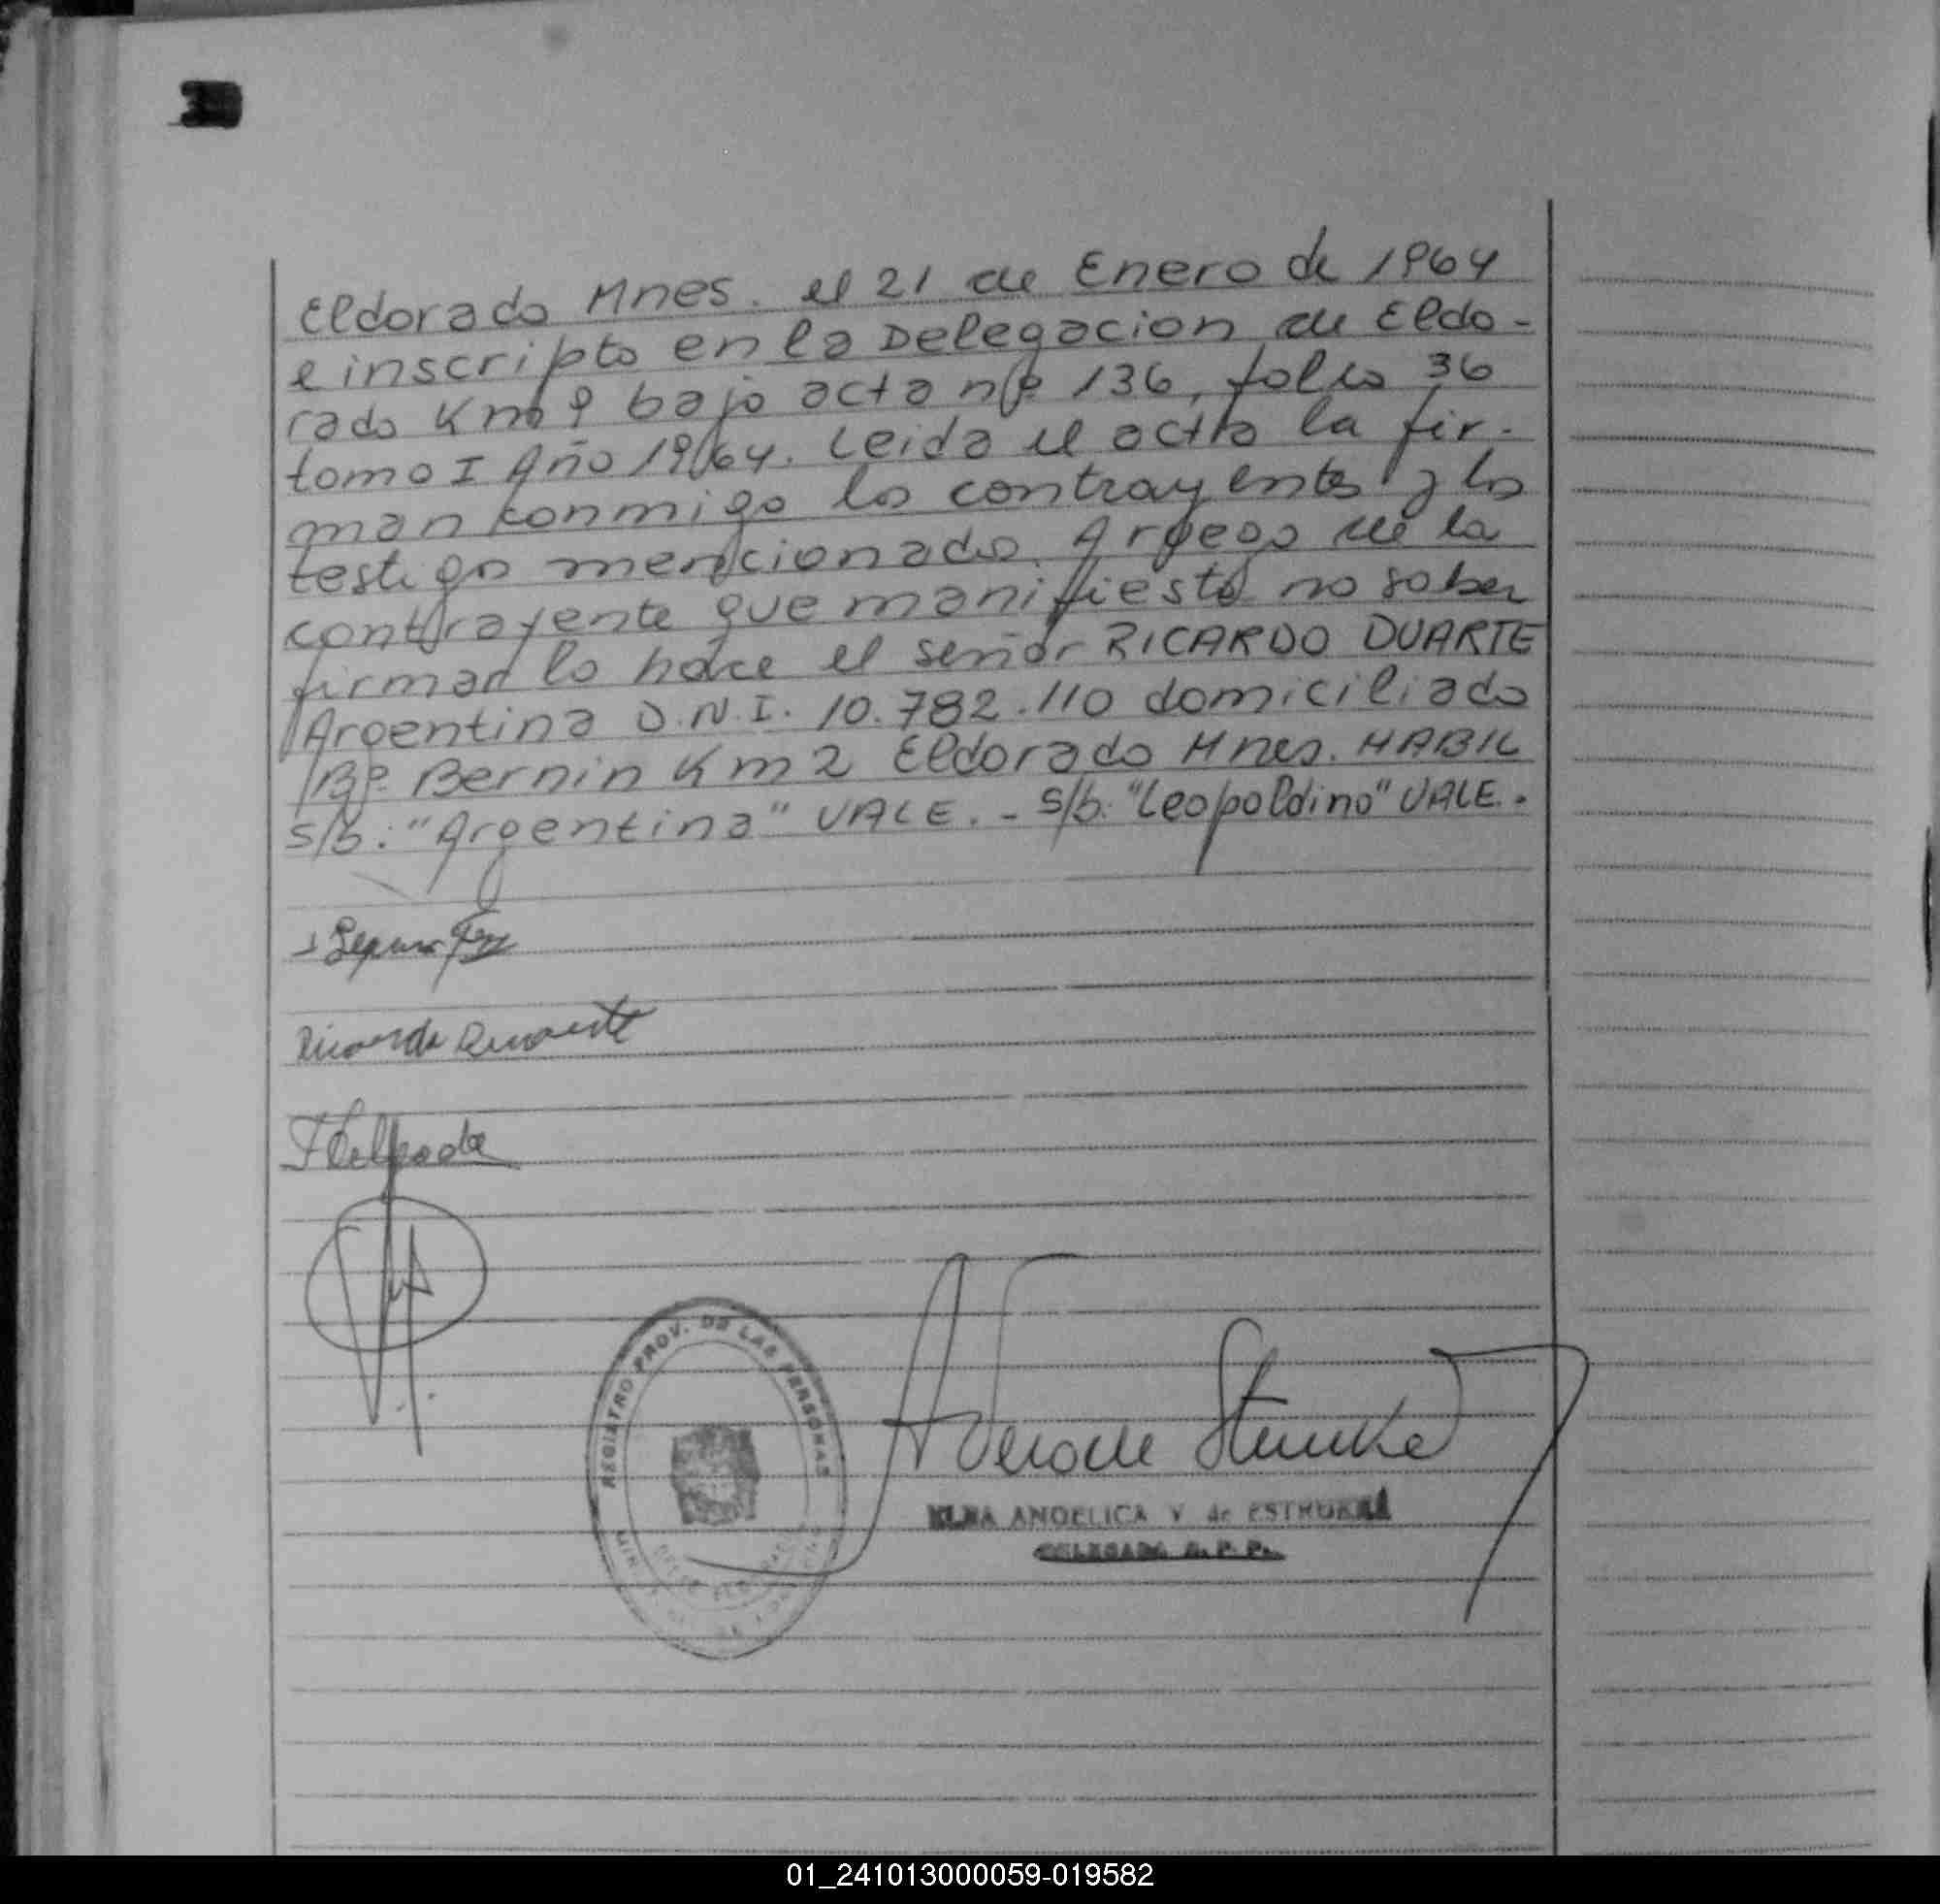 Eldorado Mnes. el 21 de Enero de 1964
e inscripto en la Delegacion de Eldo-
rado Km 9 bajo acta nº 136, folio 36
tomo I Año 1964. Leida el acta la fir-
man conmigo los contrayentes y los
testigos mencionados. A ruego de la
contrayente que manifiesta no saber
firmar lo hace el señor RICARDO DUARTE
Argentina D.N.I. 10.782.110 domiciliado
Bº Bernin Km 2 Eldorado Mnes. HABIL
s/b: "Argentina" VALE. - s/b: "Leopoldino" VALE.-
Ricardo Duarte
REGISTRO PROV. DE LAS PERSONAS
ELBA ANGELICA V de ESTRUKEL
DELEGADA R. P. P.
01_241013000059-019582